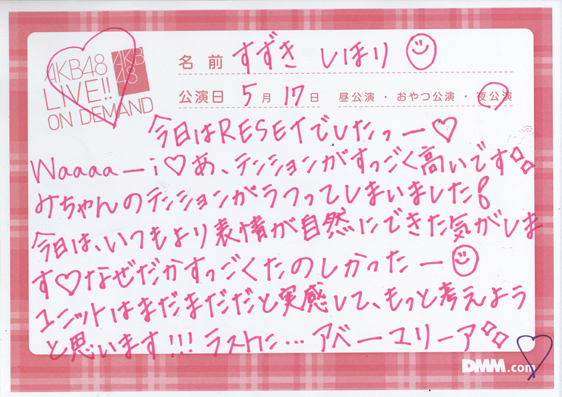 AKB48
LIVE!!
ON DEMAND
AKB
48
名前 すずき しほり
公演日 5月17日 昼公演・おやつ公演・夜公演
今日はRESETでしたっー♡
Waaaaーi♡あ、テンションがすっごく高いです
みちゃんのテンションがうつってしまいました
今日は、いつもより表情が自然にできた気がしま
す♡なぜだかすっごくたのしかったー
ユニットはまだまだだと実感して、もっと考えよう
と思います!!! ラストに…アベーマリーア
DMM.com